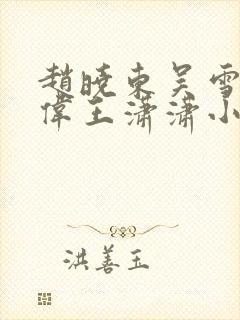 趙曉東吳雪
偉王瀟瀟小
洪善玉